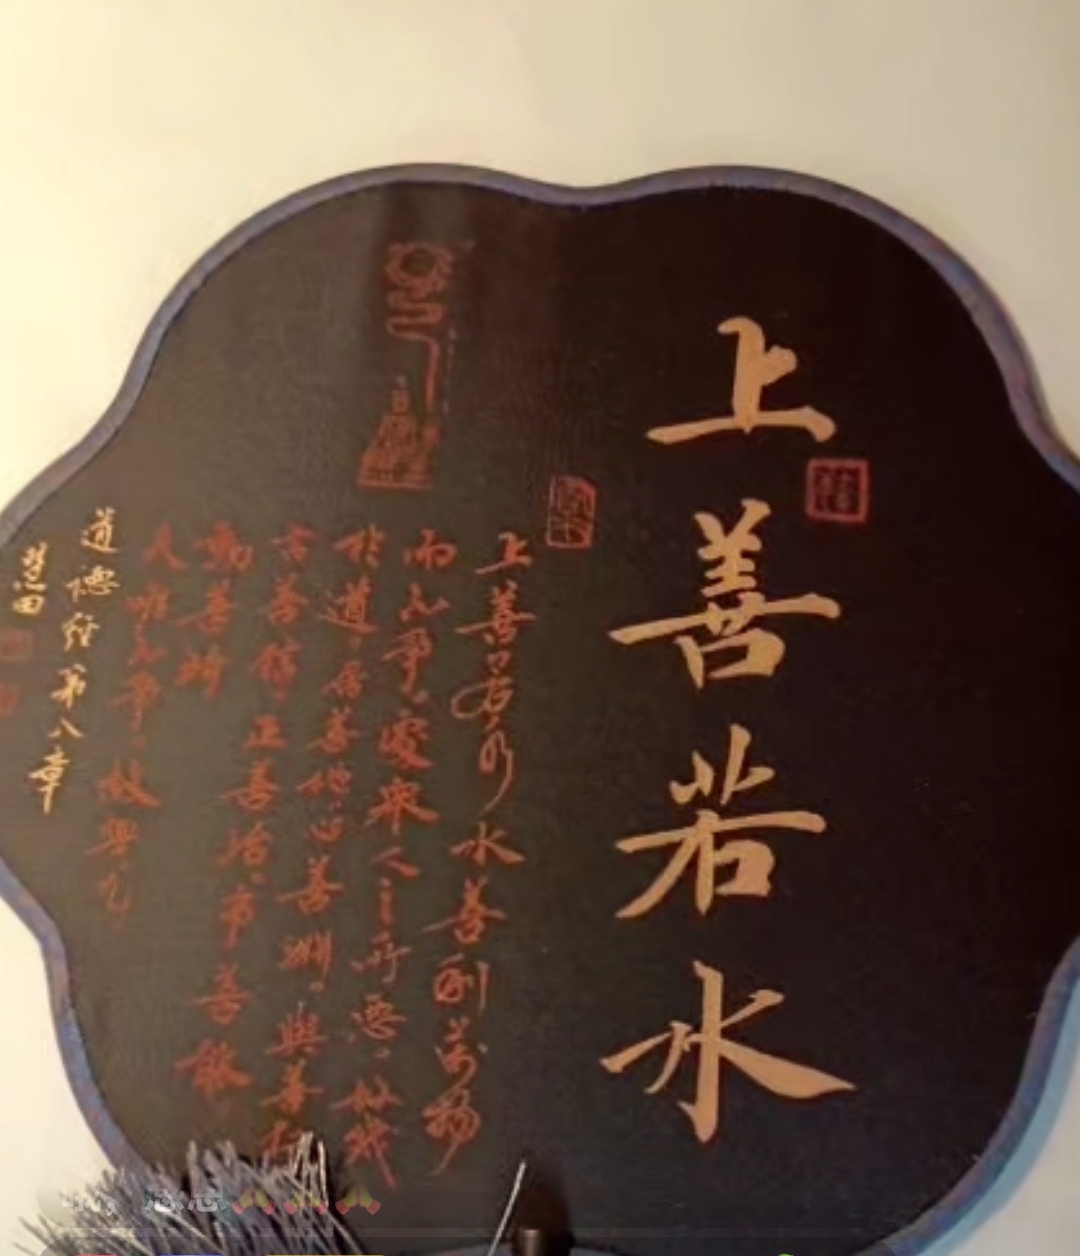 上善若水
上善若水水善利萬物
而不爭,處衆人之所惡,故幾
於道,居善地,心善淵,與善仁
言善信,正善治,事善能
動善時
夫唯不爭,故無尤
道德經第八章
慧田